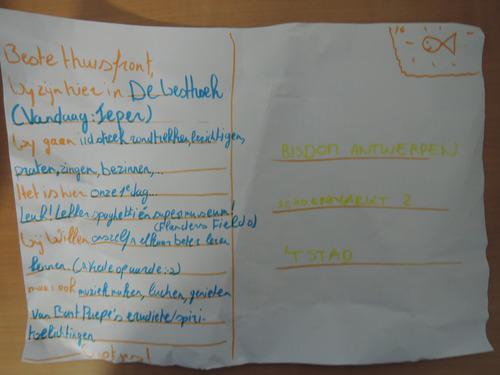 Beste thuisfront,
wij zijn hier in De Westhoek
(Vandaag: Ieper)
Wij gaan de streek rondtrekken, bezichtigen,
praten, zingen, bezinnen,...
Het is hier onze 1e dag...
Leuk! Lekker spaghetti én supermuseum!
(Flanders Fields)
Wij willen onszelf n elkaar beter leren
kennen (vrede op aarde :-)
maar ook muziek maken, lachen, genieten
van Bart Paepe's erudiete/spiri-
toelichtingen
BISDOM ANTWERPEN
SCHOENMARKT 2
'T STAD